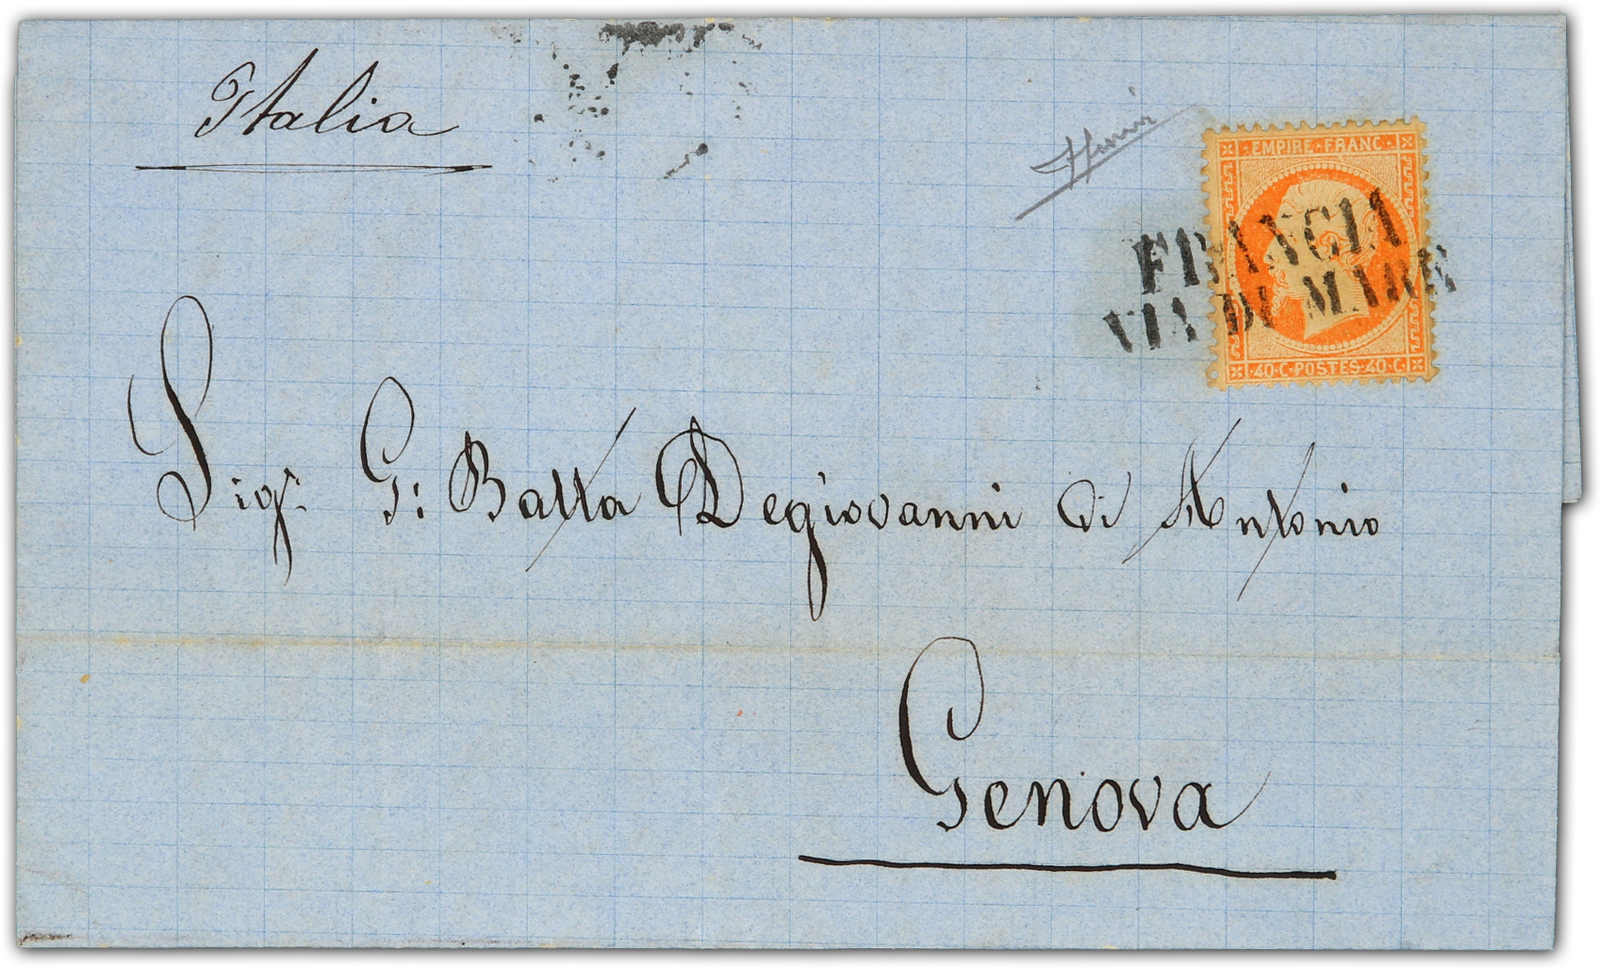 Italia
EMPIRE · FRANC ·
FRANCIA
VIA DI MARE
· 40 · C · POSTES · 40 · C ·
Sigr. G: Batta Degiovanni di Antonio
Genova